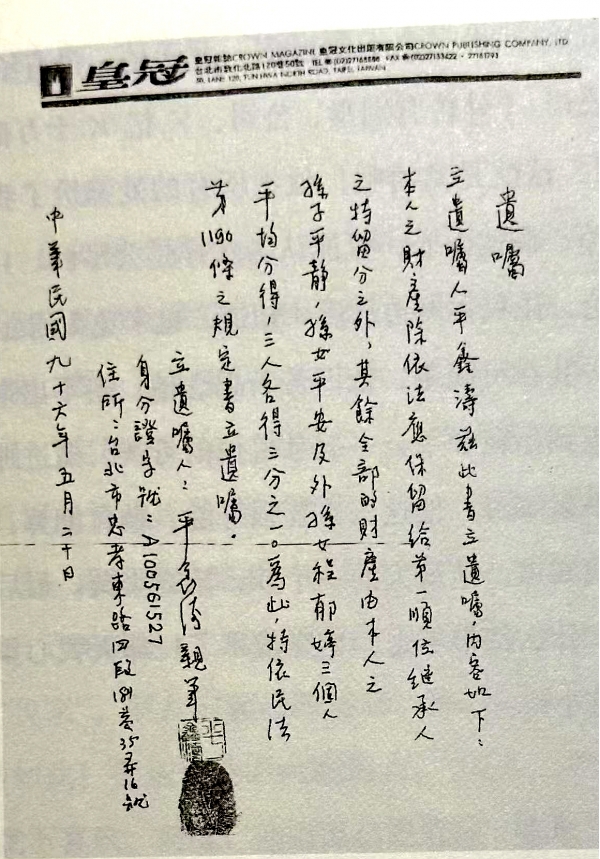 皇冠 皇冠雜誌CROWN MAGAZINE 皇冠文化出版有限公司CROWN PUBLISHING COMPANY, LTD
台北市敦化北路120巷50號 TEL (02)27168888 FAX (02)27133422 · 27161793
50, LANE 120, TUN HWA NORTH ROAD, TAIPEI, TAIWAN
遺囑
立遺囑人平鑫濤茲此書立遺囑,內容如下:
本人之財產除依法應保留給第一順位繼承人
之特留分之外,其餘全部的財產由本人之
孫子平靜,孫女平安及外孫女程郁婷三個人
平均分得,三人各得三分之一。為此,特依民法
第1190條之規定書立遺囑。
立遺囑人:平鑫濤親筆
身分證字號:A100561527
住所:台北市忠孝東路四段 巷35弄16號
中華民國九十六年五月二十日